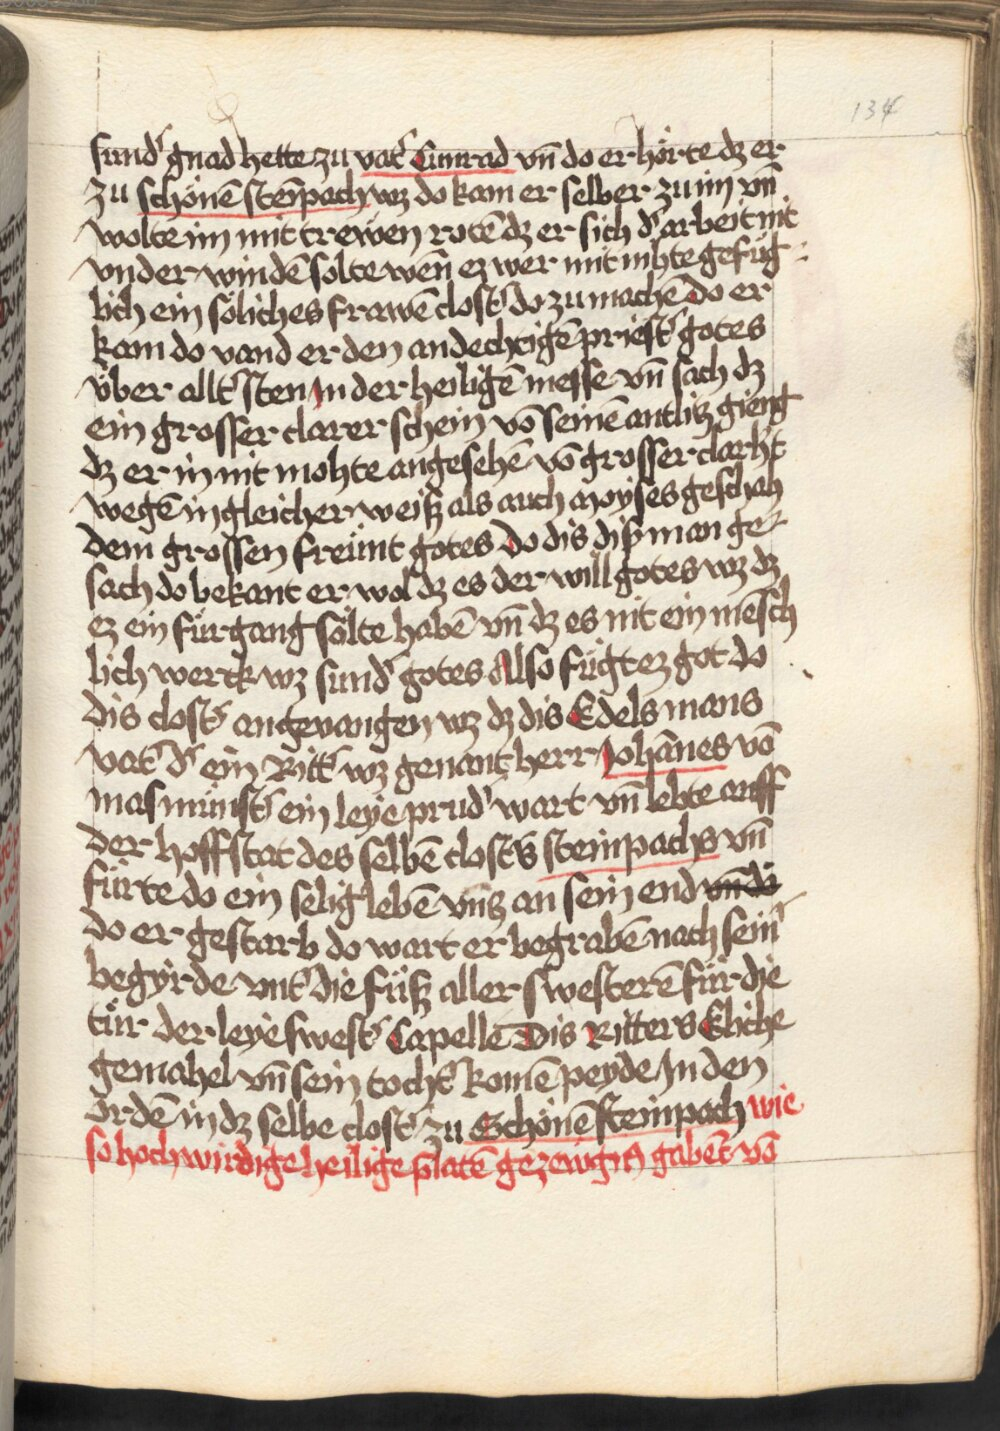 134
sundʼ gnad hette zu vatʼ Cunrad vn̄ do er hörte dz er
zu schönē steīpach wz do kam er selber zu im vn̄
wolte im mit trewen rotē dz er sich dʼ arbeit nit
vnder winden solte wēn ez wer mit nihte gefüg
lich ein söliches frawē clostʼ do zu machē Do er
kam do vand er den andechtigē priestʼ gotes
über alltʼ sten In der heiligē messe vn̄ sach dz
ein grosser clarer schein vō seinē antlitz gieng
dz er in nit mohte angesehē vō grosser clarht
wegē in gleicher weiß als auch moyses geschah
dem grossen freünt gotes Do dis diß man ge
sach do bekant er wol dz es der will gotes wz dz
ez ein fürgang sölte habē vn̄ dz es nit ein mēsch
lich werck wz sundʼ gotes Also fügt ez got do
dis clostʼ angevangen wz dz dis Edelsmans
vatʼ dʼ ein Rittʼ wz genant herr Johānes vō
masmünstʼ ein leye prudʼ wart vn̄ lebte auff
der hoffstat des selbē clostʼs steinpachs vn̄
fürte do ein selig lebē vntz an sein end vn̄ di
do er gestarb do wart er begrabē nach seinʼ
begyrde vntʼ die füß aller swesterē für die
tür der leye swestʼ Capellē Dis Ritters Eliche
gemahel vn̄ sein tochtʼ komē peyde In den
ordē in dz selbe clostʼ zu Schönē steinpach wie
so hochwirdige heilige platē gezewgnʼ gabēt vō